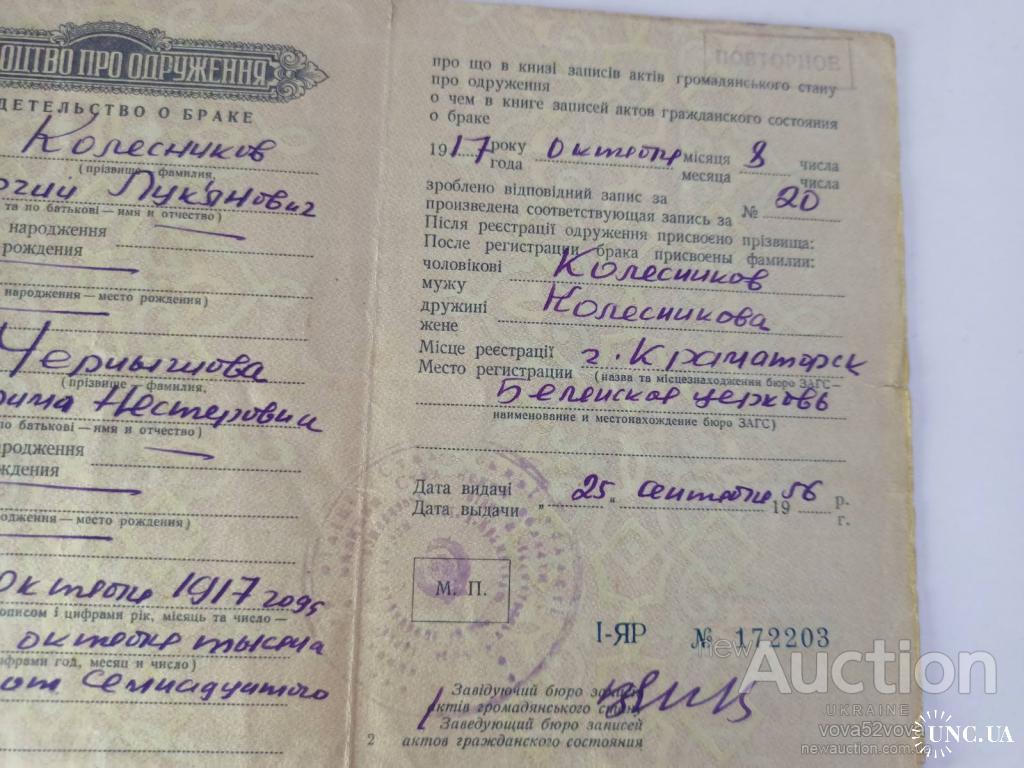 ОЦТВО ПРО ОДРУЖЕННЯ
ДЕТЕЛЬСТВО О БРАКЕ
Колесников
(прізвище — фамилия,
ргий Лук'янович
та по батькові — имя и отчество)
народження
рождения
народження — место рождения)
(прізвище — фамилия,
Нестеровны
по батькові — имя и отчество)
ародження
ждения
ародження — место рождения)
октября 1917 года
описом і цифрами рік, місяць та число —
октября тысяча
ифрами год, месяц и число)
сот семнадцатого
ПОВТОРНОЕ
про що в книзі записів актів громадянського стану
про одруження
о чем в книге записей актов гражданского состояния
о браке
1917 року октября місяця 8 числа
года месяца числа
зроблено відповідний запис за № 20
произведена соответствующая запись за
Після реєстрації одруження присвоєно прізвища:
После регистрации брака присвоены фамилии:
чоловікові Колесников
мужу
дружині Колесникова
жене
Місце реєстрації г. Краматорск
Место регистрации (назва та місцезнаходження бюро ЗАГС—
церковь
наименование и местонахождение бюро ЗАГС)
Дата видачі „25„ сентября 1956 р.
Дата выдачи г.
М. П.
І-ЯР № 172203
Завідуючий бюро записів
актів громадянського стану
Заведующий бюро записей
актов гражданского состояния
2
newAuction
UKRAINE
vova52vova
newauction.com.ua
UNC.UA